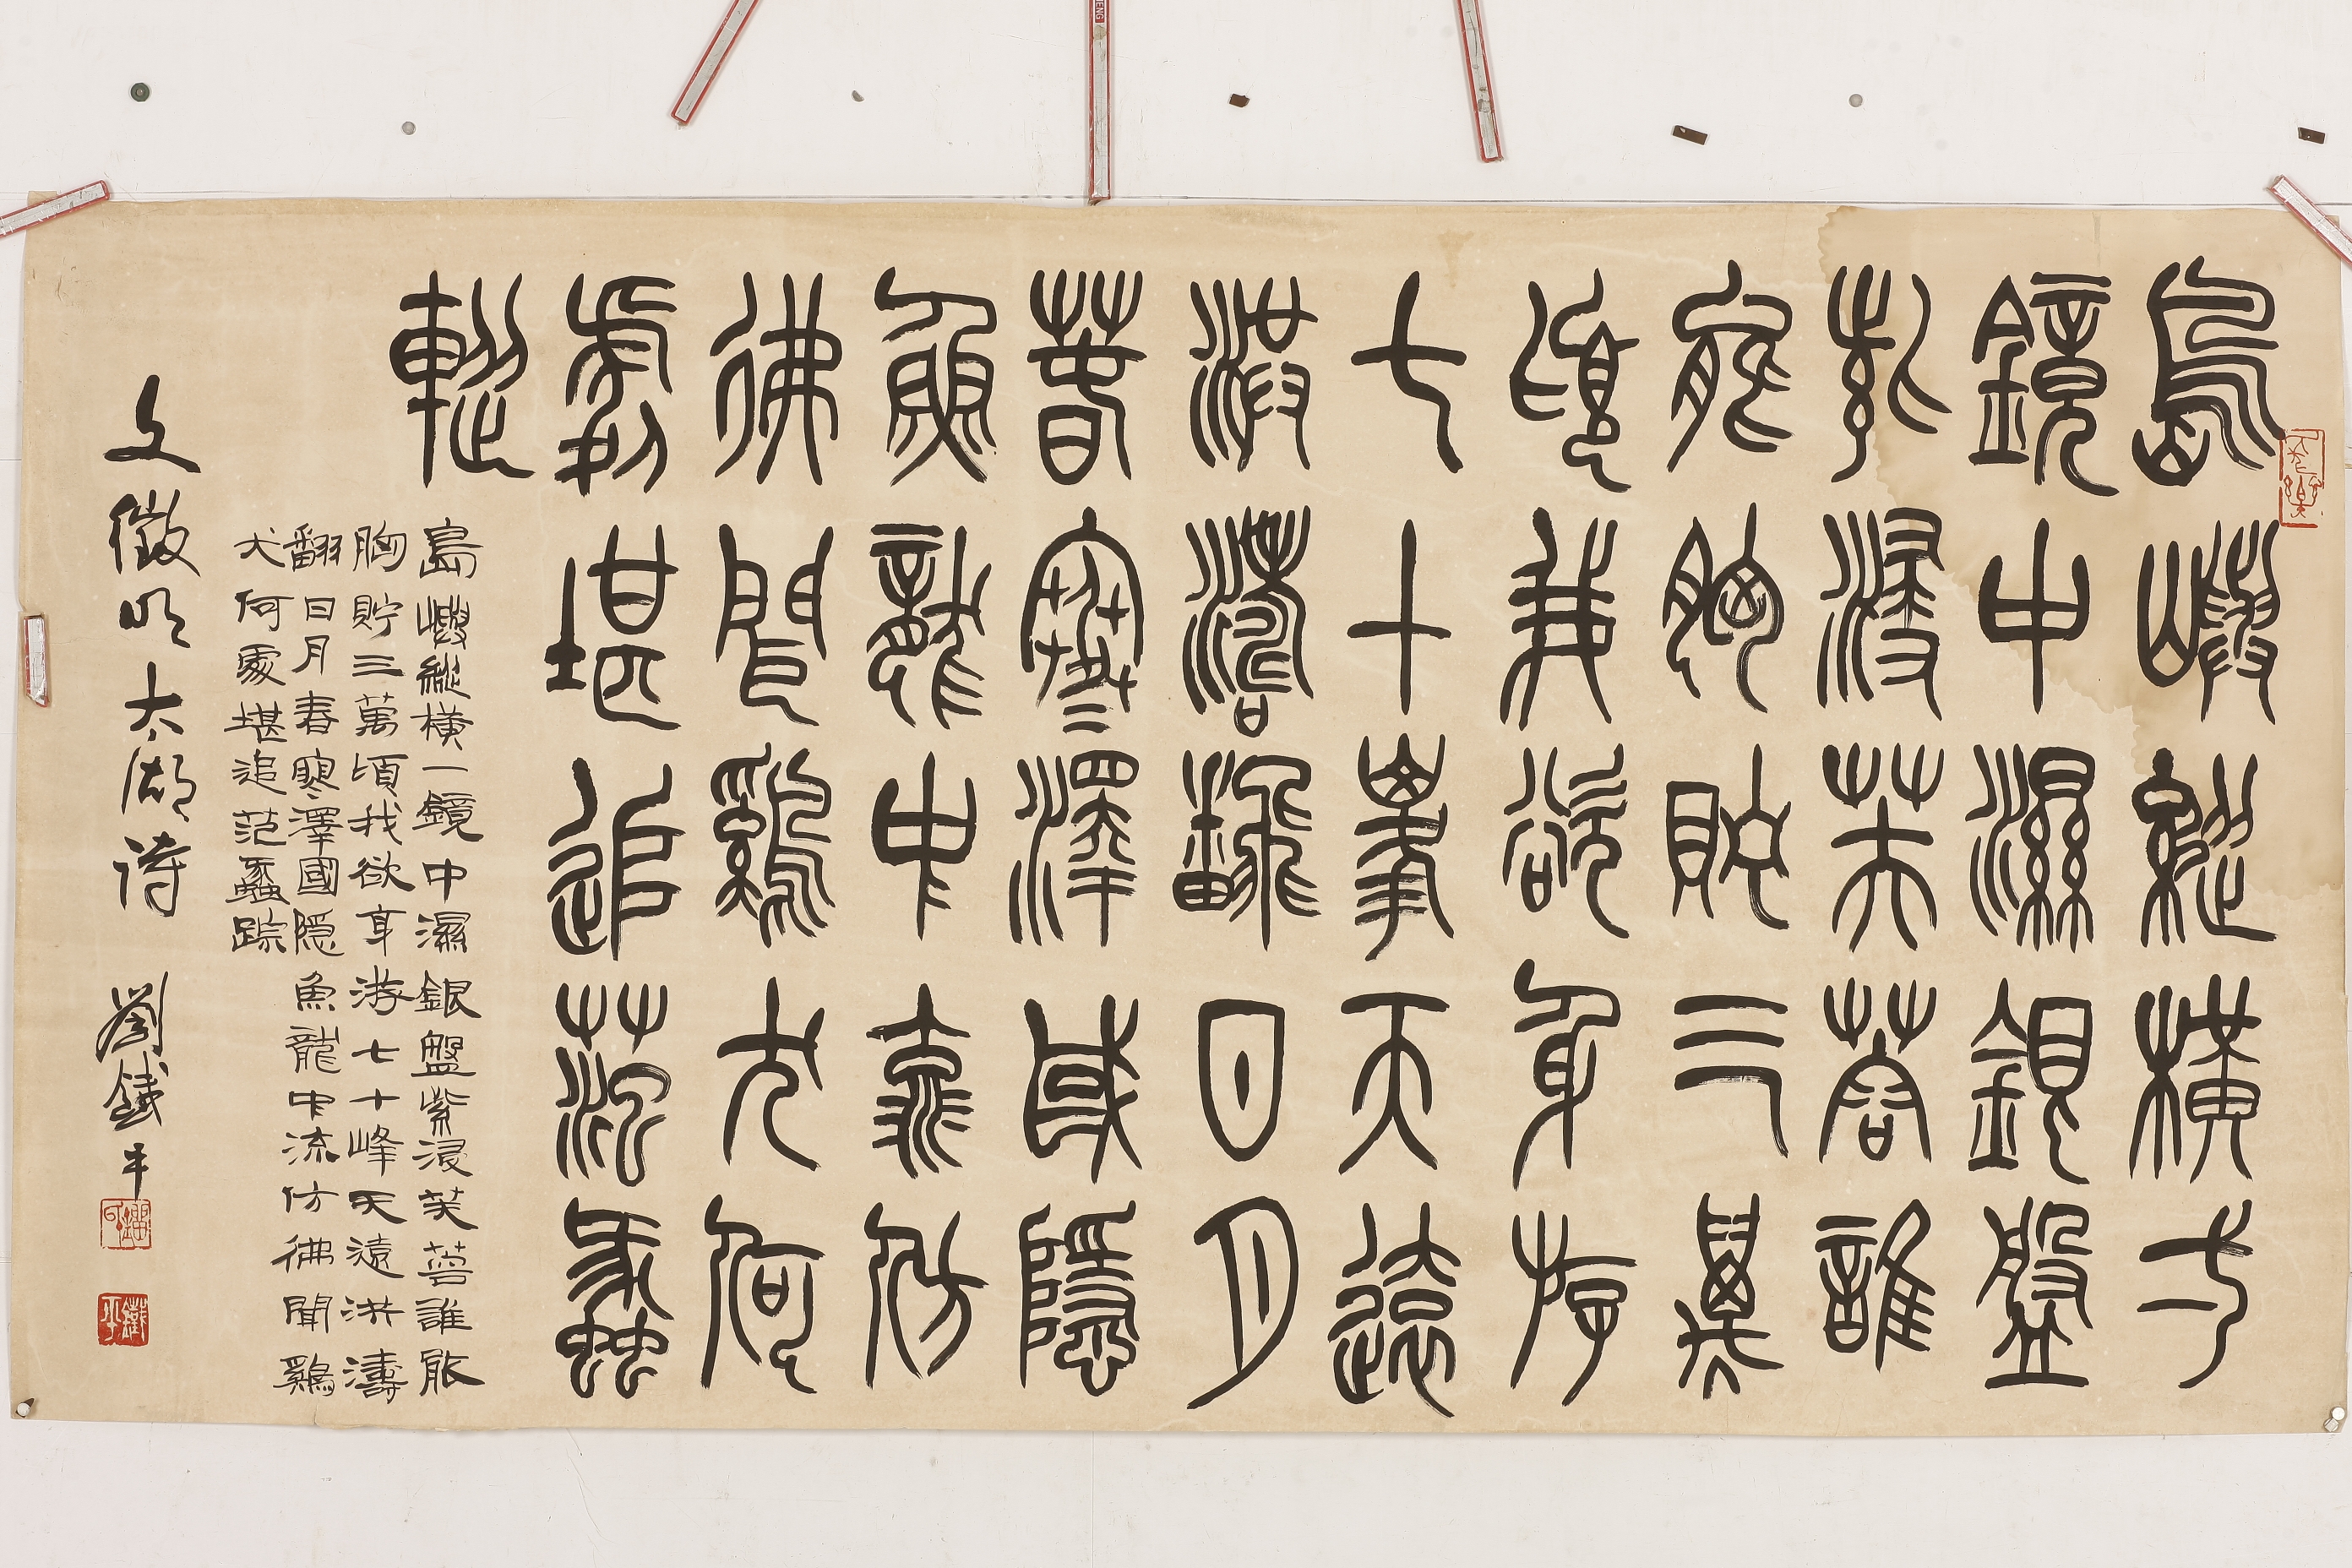 島嶼縱橫一
鏡中濕銀盤
紫浸芙蓉誰
能胸貯三萬
頃我欲身游
七十峯天遠
洪濤翻日月
春寒澤國隱
魚龍中流仿
佛聞鷄犬何
處堪追范蠡
蹤
島嶼縱橫一鏡中濕銀盤紫浸芙蓉誰能
胸貯三萬頃我欲身游七十峰天遠洪濤
翻日月春寒澤國隱魚龍中流仿佛聞鷄
犬何處堪追范蠡踪
文徵明太湖诗 劉鐵平
鐵平